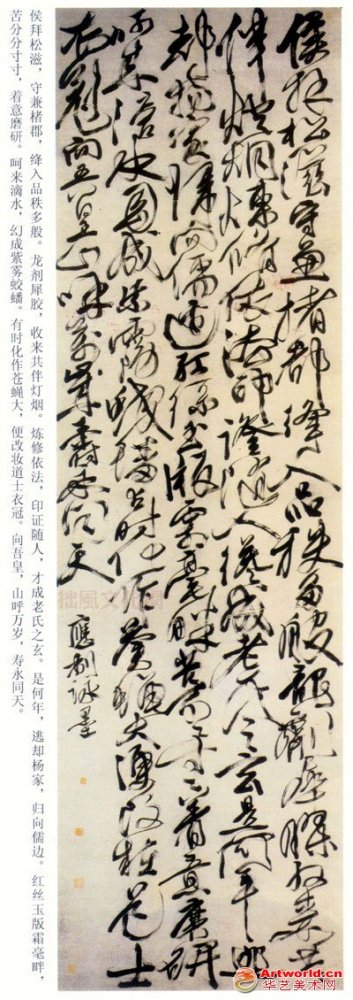 侯拜松滋守兼楮郡絳入品秩多般龍劑犀膠收來共
伴燈烟煉修依法印證隨人才成老氏之玄是何年逃
却楊家歸向儒邊紅絲玉版霜毫畔苦分分寸寸着意磨研
呵來滴水幻成紫霧蛟蟠有時化作蒼蠅大便改粧道士
衣冠向吾皇山呼萬歲壽永同天
應制詠墨
侯拜松滋，守兼楮郡，绛入品秩多般。龙剂犀胶，收来共伴灯烟。炼修依法，印证随人，才成老氏之玄。是何年，逃却杨家，归向儒边。红丝玉版霜毫畔，
苦分分寸寸，着意磨研。呵来滴水，幻成紫雾蛟蟠。有时化作苍蝇大，便改妆道士衣冠。向吾皇，山呼万岁，寿永同天。
Artworld.cn
华艺美术网